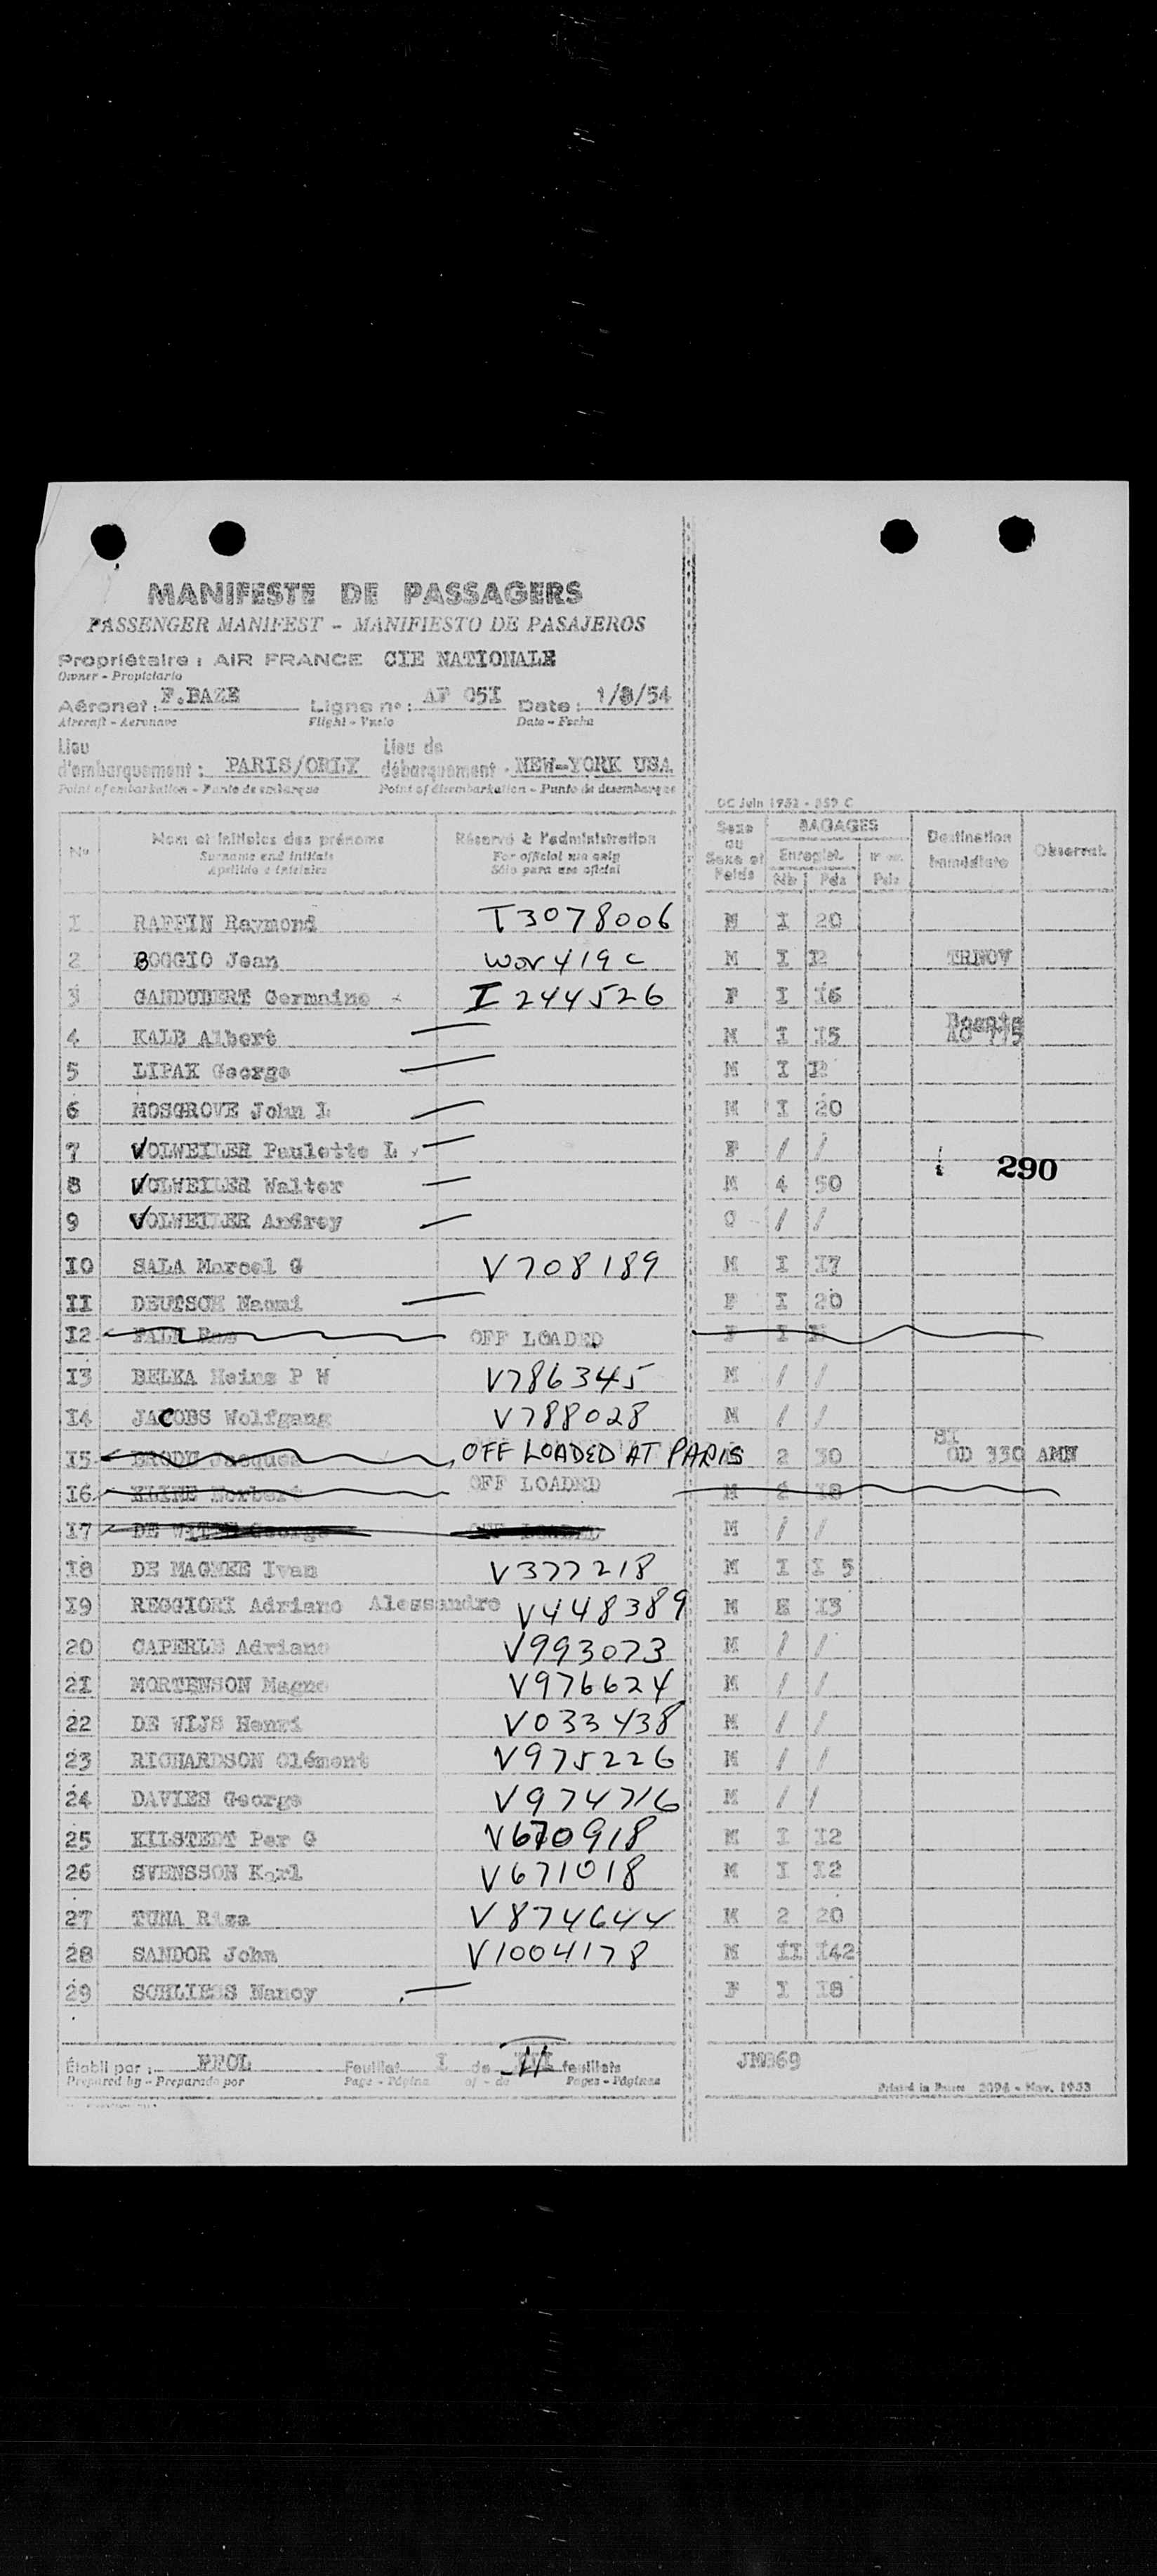 MANIFESTE DE PASSAGERS
PASSENGER MANIFEST - MANIFIESTO DE PASAJEROS
Propriétaire : AIR FRANCE CIE NATIONALE
Owner - Propietario
Aéronef : F.BAZE Ligne n° : AF 05I Date : 1/8/54
Aircraft - Aeronave Flight - Vuelo Date - Fecha
Lieu Lieu de
d'embarquement : PARIS/ORLY débarquement : NEW-YORK USA
Point of embarkation - Punto de embarque Point of disembarkation - Punto de desembarque
OC Juin 1952 - 859 C
N° Nom et initiales des prénoms Réservé à l'administration Sexe ou BAGAGES Destination Observat.
Surname and initials For official use only Sexe et Enregist. immédiate
Apellido e iniciales Sólo para uso oficial Poids Nb Pds Pds
1 RAFFIN Raymond T3078006 M I 20
2 BOGGIO Jean WOV 419 C M I I2 TRNOV
3 GANDUBERT Germaine I 244526 F I I6
4 KALB Albert M I I5 AC 775
5 LIPAK George M I I2
6 MOSGROVE John L M I 20
7 VOLWEILER Paulette L F / /
8 VOLWEILER Walter M 4 50
290
9 VOLWEILER C / /
10 SALA Marcel G V708189 M I I7
II DEUTSCH Naomi F I 20
I2 OFF LOADED F I
I3 BELKA Heinz P W V786345 M / /
I4 JACOBS Wolfgang V788028 M / /
I5 BRODU Jacques OFF LOADED AT PARIS 2 30 OD 330 AMN
I6 KLINE Norbert OFF LOADED M 2 I8
I7 DE George M / /
I8 DE MAGNEE Ivan V377218 M I I 5
I9 REGGIORI Adriano Alessandro V448389 M I3
20 CAPERLE Adriano V993073 M / /
2I MORTENSON Magne V976624 M / /
22 DE WIJS Henri V033438 M / /
23 RICHARDSON Clément V975226 M / /
24 DAVIES George V974716 M / /
25 KILSTEDT Per G V670918 M I I2
26 SVENSSON Karl V671018 M I I2
27 TUNA Riza V874644 M 2 20
28 SANDOR John V1004178 M II I42
29 SCHLIESS Nancy F I I8
Établi par : Feuillet I de feuillets JM869
Prepared by - Preparado por Page - Página of - de Pages - Páginas
Printed in France 2094 - Nov. 1953